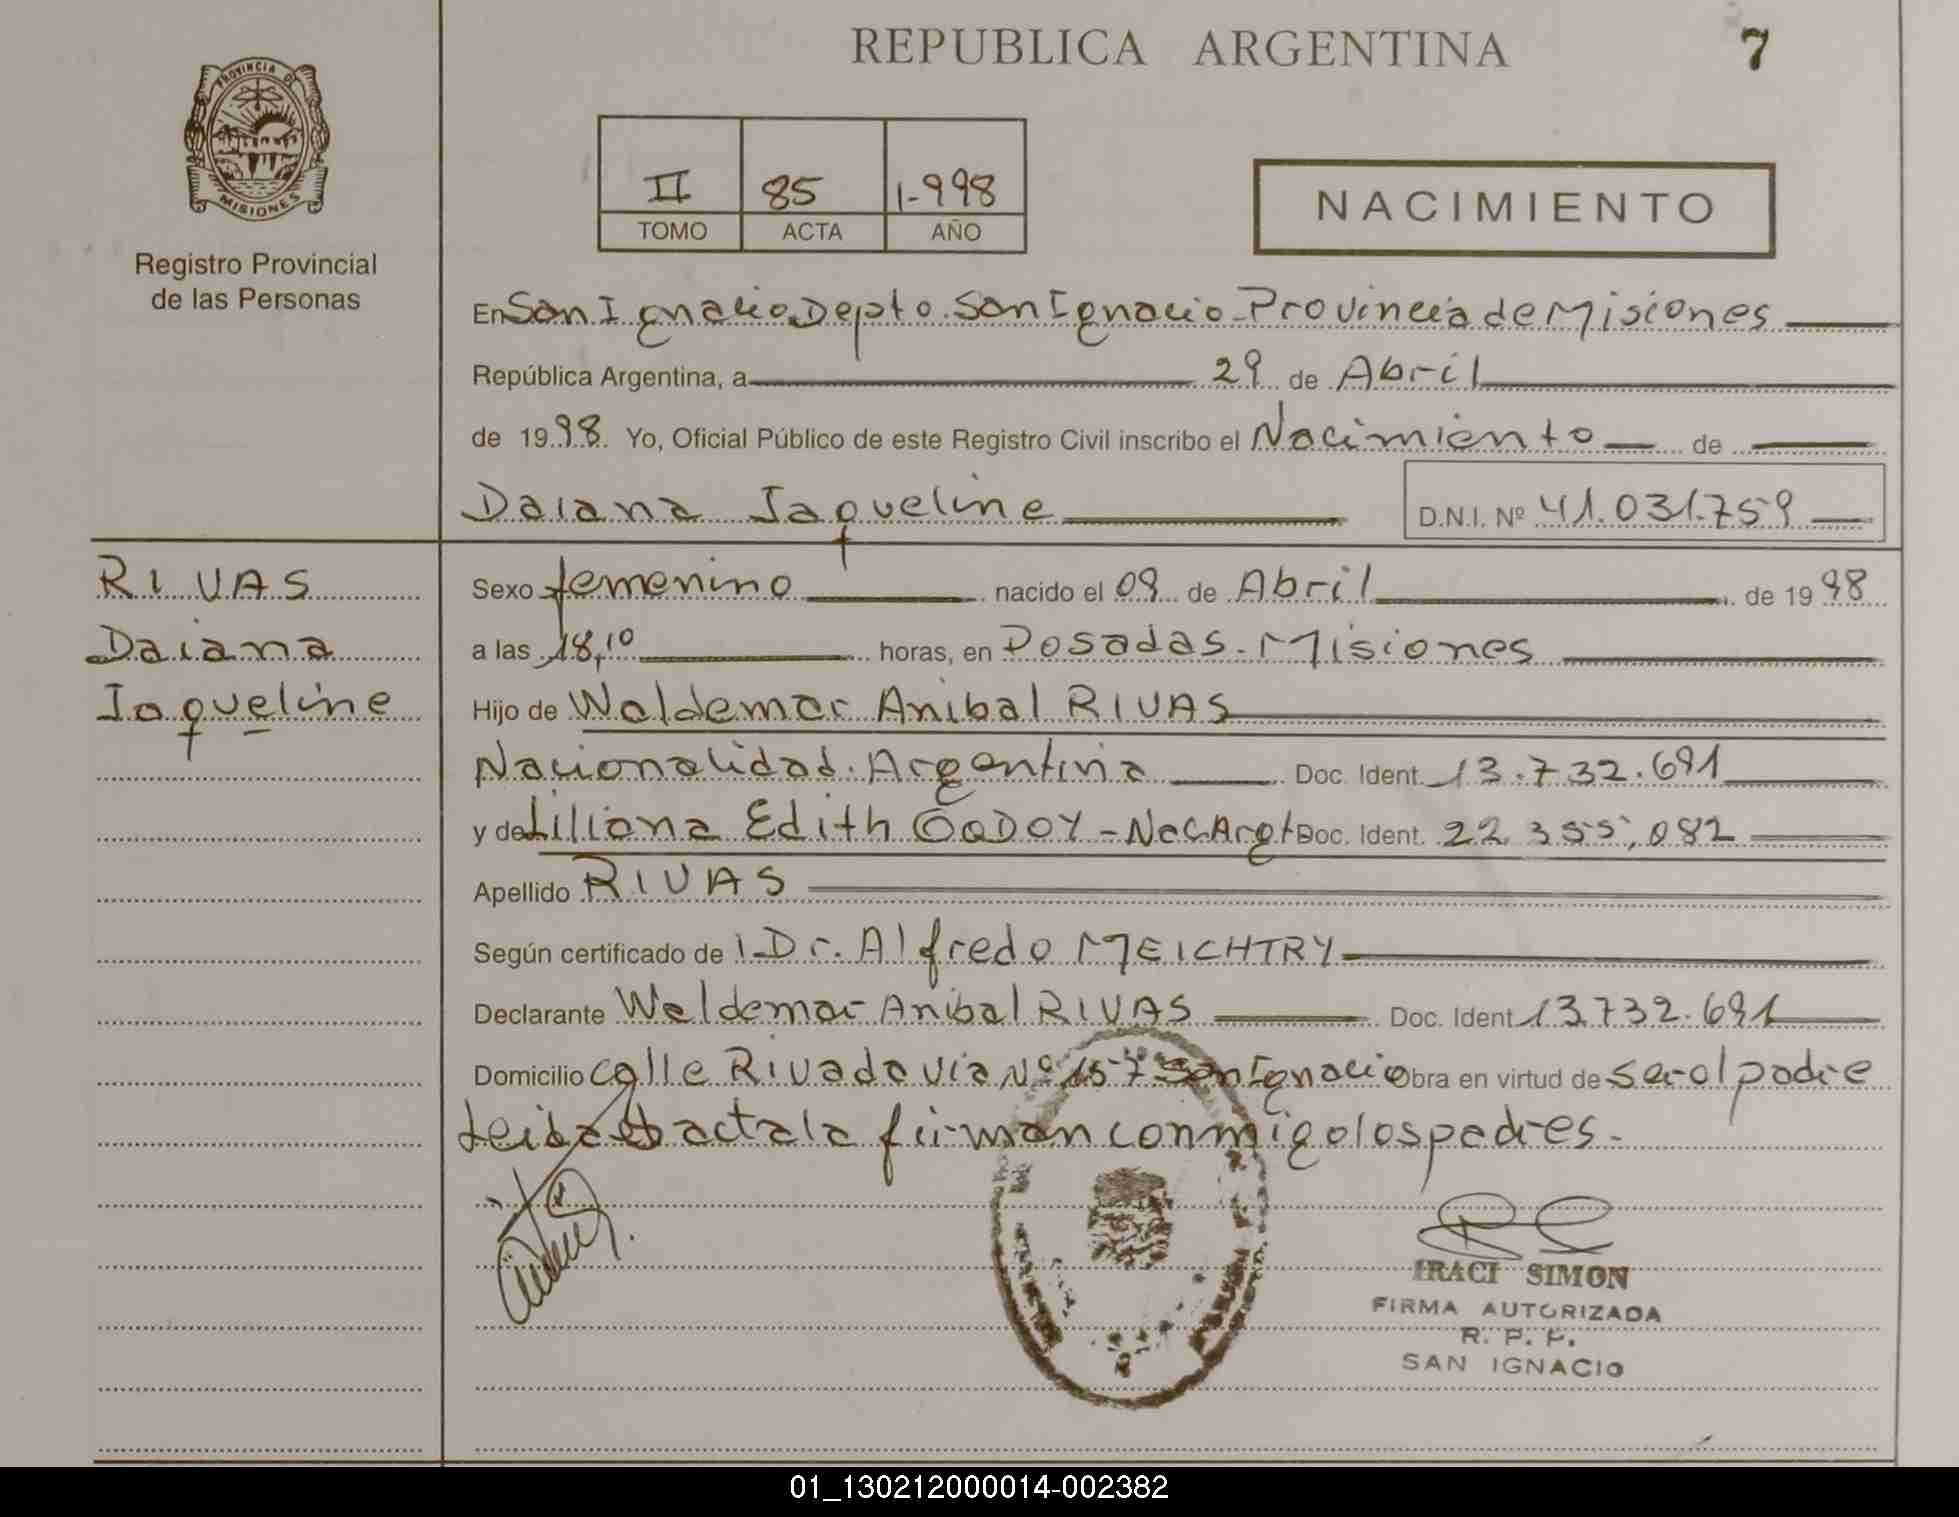 REPUBLICA ARGENTINA
7
PROVINCIA DE
MISIONES
Registro Provincial
de las Personas
II 85 1-998
TOMO ACTA AÑO
NACIMIENTO
En San Ignacio Depto. San Ignacio - Provincia de Misiones
República Argentina, a 29 de Abril
de 1998. Yo, Oficial Público de este Registro Civil inscribo el Nacimiento de
Daiana Jaqueline D.N.I. Nº 41.031.759
RIVAS
Daiana
Jaqueline
Sexo femenino nacido el 09 de Abril de 1998
a las 18,10 horas, en Posadas - Misiones
Hijo de Waldemar Anibal RIVAS
Nacionalidad. Argentina Doc. Ident. 13.732.691
y de Liliana Edith GODOY - Nac. Argt Doc. Ident. 22.355.082
Apellido RIVAS
Según certificado de 1-Dr. Alfredo MEICHTRY
Declarante Waldemar Anibal RIVAS Doc. Ident. 13.732.691
Domicilio calle Rivadavia Nº 157 San Ignacio Obra en virtud de ser el padre
Leida acta la firman conmigo los padres.-
IRACI SIMON
FIRMA AUTORIZADA
R. P. P.
SAN IGNACIO
01_130212000014-002382